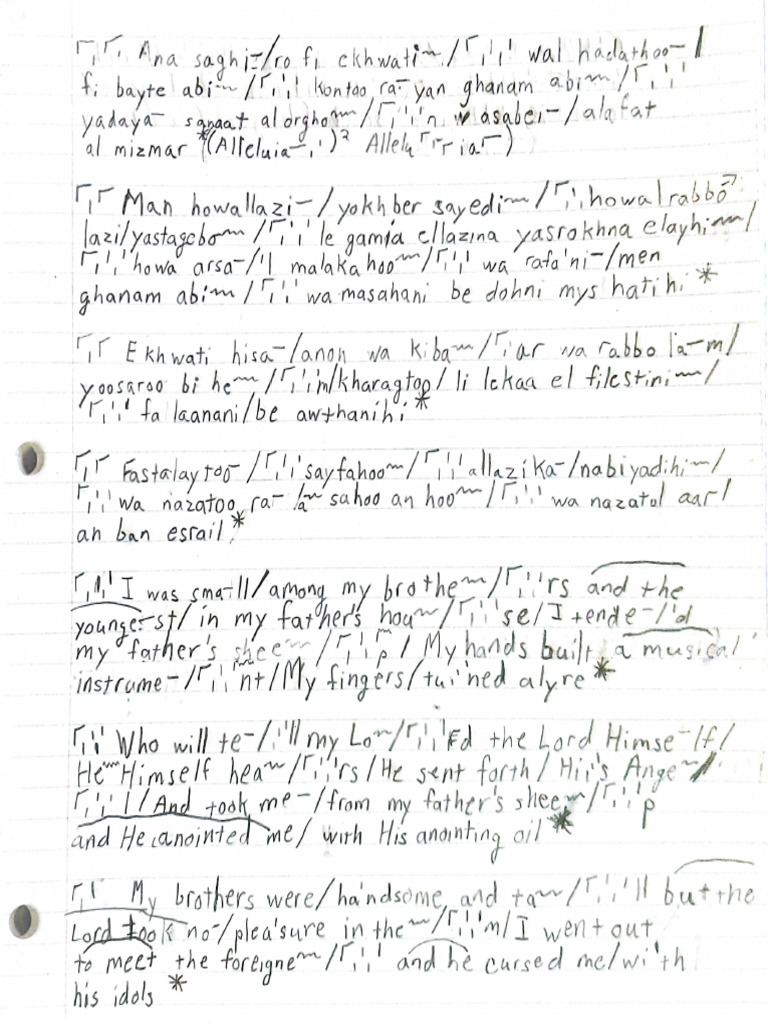 Ana saghi-/ro fi ekhwati~/ wal hadathoo-/
fi bayte abi~/ kontoo ra-yan ghanam abi~/
yadaya- sanaat al orgho~/ n w asabei-/ala fat
al mizmar *(Alleluia-)² Allelu ia-)
Man howallazi-/yokhber sayedi~/ howal rabbo
lazi/yastagebo~/ le gamia ellazina yasrokhna elayhi~/
howa arsa-/'l malaka hoo~/ wa rafa'ni-/men
ghanam abi~/ wa masahani be dohni mys hatihi *
Ekhwati hisa-/anon wa kiba~/ ar wa rabbo la-m/
yoosaroo bi he~/ m/kharagtoo/ li lekaa el filestini~/
fa laanani/be awthanihi *
Fastalaytoo-/ sayfahoo~/ allazi ka-/nabiyadihi~/
wa nazatoo ra-/a~ sahoo an hoo~/ wa nazatol aar/
an ban esrail *
I was sma-ll/among my brothe~/ rs and the
younge-st/in my father's hou~/ se/I tende-/'d
my father's shee~/ p/My hands built a musical
instrume-/ nt/My fingers/tuned a lyre *
Who will te-/'ll my Lo~/ rd the Lord Himse-lf/
He~Himself hea~/ rs/He sent forth/Hii's Ange~/
l/And took me-/from my father's shee~/ p
and He anointed me/ with His anointing oil *
My brothers were/handsome and ta~/ ll but the
Lord took no-/pleasure in the~/ m/I went out
to meet the foreigne~/ and he cursed me/with
his idols *